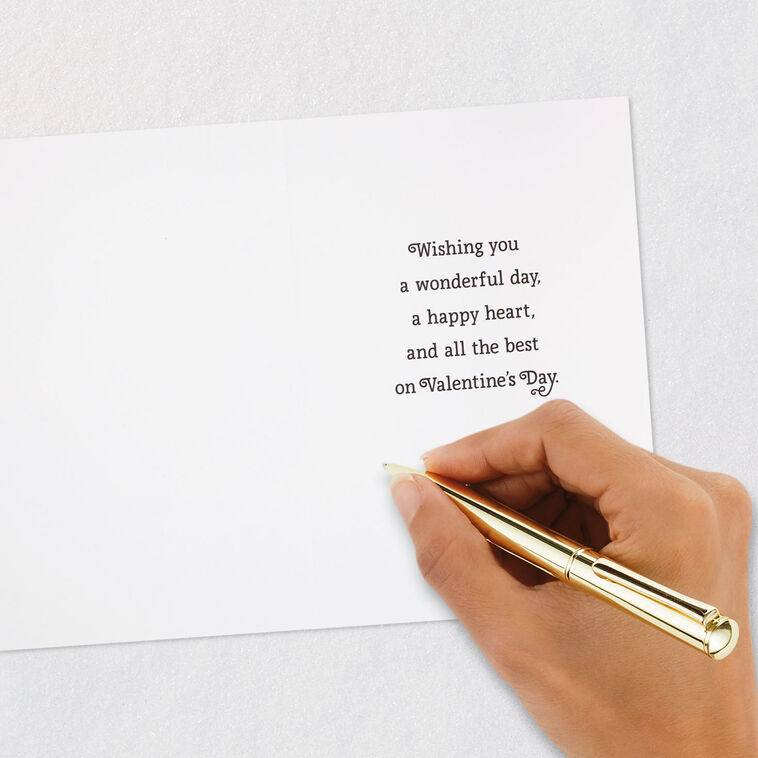 Wishing you
a wonderful day,
a happy heart,
and all the best
on Valentine's Day.